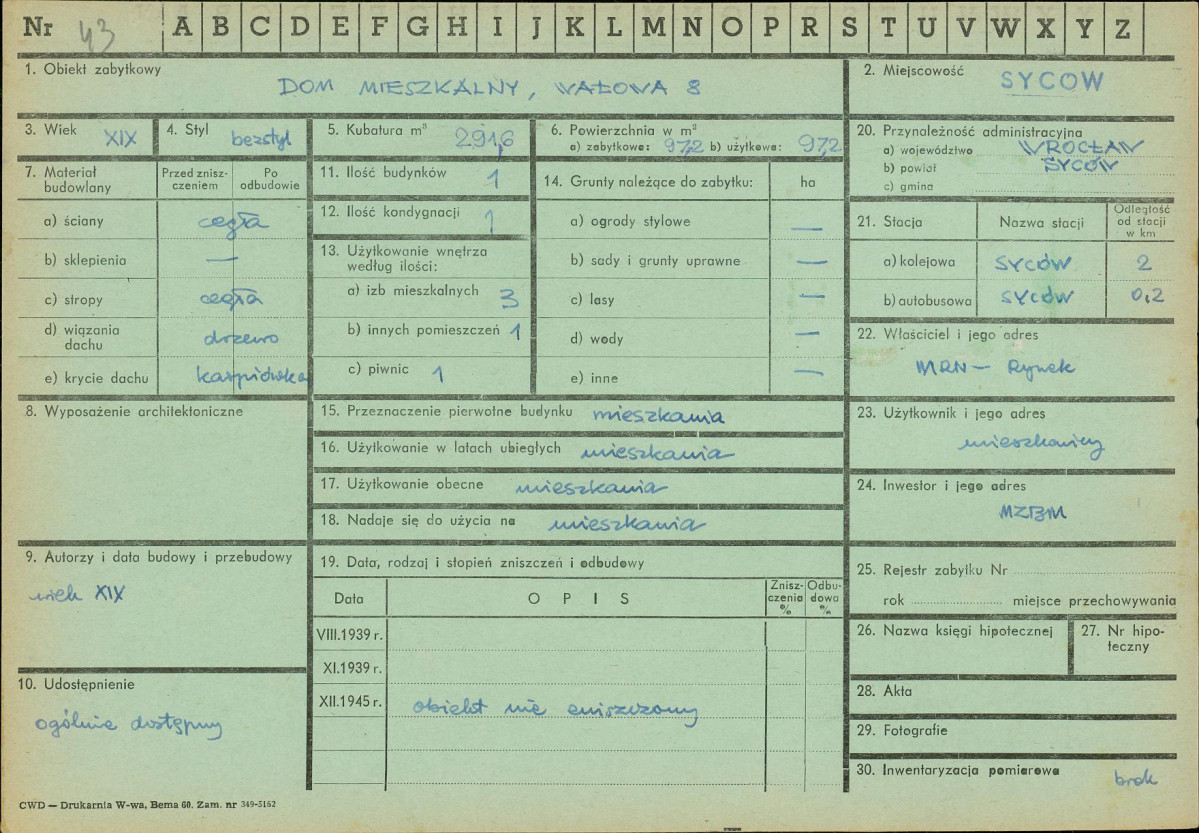 Nr 43 A B C D E F G H I J K L M N O P R S T U V W X Y Z
1. Obiekt zabytkowy
DOM MIESZKALNY, WAŁOWA 8
2. Miejscowość SYCOW
3. Wiek XIX
4. Styl bezstyl
5. Kubatura m³ 291,6
6. Powierzchnia w m²
a) zabytkowa: 97,2 b) użytkowa: 97,2
7. Materiał budowlany
Przed zniszczeniem
Po odbudowie
a) ściany cegła
b) sklepienia —
c) stropy cegła
d) wiązania dachu drzewo
e) krycie dachu karpiówka
8. Wyposażenie architektoniczne
9. Autorzy i data budowy i przebudowy
wiek XIX
10. Udostępnienie
ogólnie dostępny
11. Ilość budynków 1
12. Ilość kondygnacji 1
13. Użytkowanie wnętrza
według ilości:
a) izb mieszkalnych 3
b) innych pomieszczeń 1
c) piwnic 1
14. Grunty należące do zabytku: ha
a) ogrody stylowe —
b) sady i grunty uprawne —
c) lasy —
d) wody —
e) inne —
15. Przeznaczenie pierwotne budynku mieszkania
16. Użytkowanie w latach ubiegłych mieszkania
17. Użytkowanie obecne mieszkania
18. Nadaje się do użycia na mieszkania
19. Data, rodzaj i stopień zniszczeń i odbudowy
Data OPIS Zniszczenia % Odbudowa %
VIII.1939 r.
XI.1939 r.
XII.1945 r. obiekt nie zniszczony
20. Przynależność administracyjna
a) województwo WROCŁAW
b) powiat SYCÓW
c) gmina
21. Stacja Nazwa stacji Odległość od stacji w km
a) kolejowa SYCÓW 2
b) autobusowa SYCÓW 0,2
22. Właściciel i jego adres
MRN — Rynek
23. Użytkownik i jego adres
mieszkańcy
24. Inwestor i jego adres
MZBM
25. Rejestr zabytku Nr
rok miejsce przechowywania
26. Nazwa księgi hipotecznej
27. Nr hipoteczny
28. Akta
29. Fotografie
30. Inwentaryzacja pomiarowa brak
CWD — Drukarnia W-wa, Bema 60. Zam. nr 349-5162